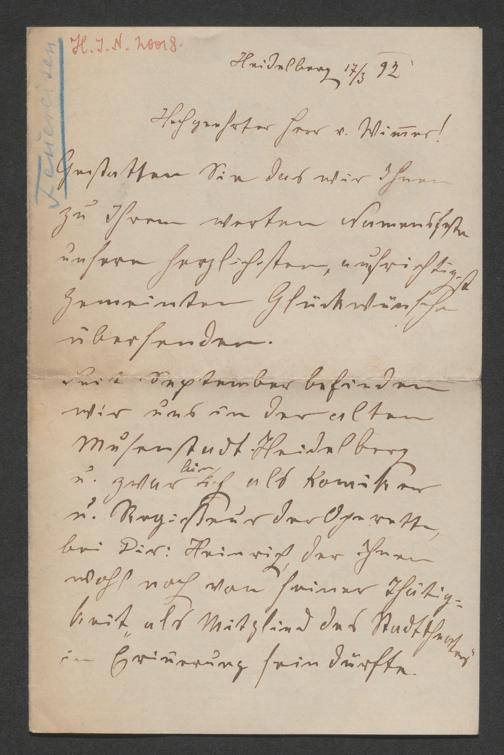 H. I. N. 20018.
Feuereisen
Heidelberg 17/3 92
Hochgeehrter Herr v. Wimmer!
Gestatten Sie das wir Ihnen
zu Ihrem werten Namensfeste
unsere herzlichsten, aufrichtigst
gemeinten Glückwünsche
übersenden.
Seit September befinden
wir uns in der alten
Musenstadt Heidelberg
u. zwar bin ich als Komiker
u. Regisseur der Operette,
bei Dir: Heinrich, der Ihnen
wohl noch von seiner Thätig=
keit, als Mitglied des Stadttheaters
in Erinnerung sein dürfte.